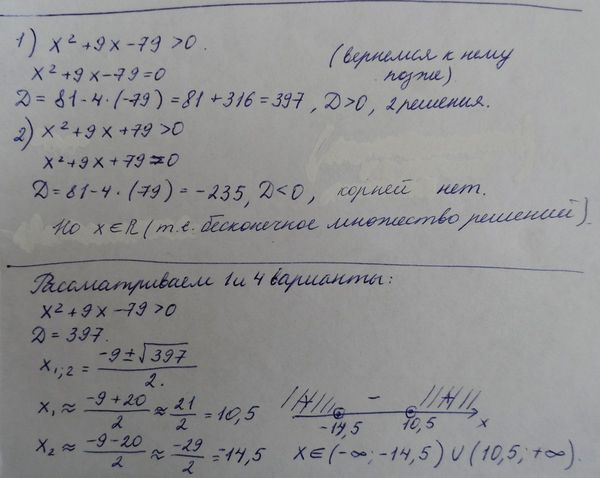 1) x² + 9x - 79 > 0.
x² + 9x - 79 = 0 (вернемся к нему позже)
D = 81 - 4 · (-79) = 81 + 316 = 397, D > 0, 2 решения.
2) x² + 9x + 79 > 0
x² + 9x + 79 = 0
D = 81 - 4 · (-79) = -235, D < 0, корней нет.
Но x ∈ R (т.е. бесконечное множество решений).
Рассматриваем 1 и 4 варианты:
x² + 9x - 79 > 0
D = 397.
x₁;₂ = (-9 ± √397)/2.
x₁ ≈ (-9 + 20)/2 ≈ 21/2 = 10,5
x₂ ≈ (-9 - 20)/2 ≈ -29/2 = -14,5
+ - +
-14,5 10,5 x
x ∈ (-∞; -14,5) ∪ (10,5; +∞).